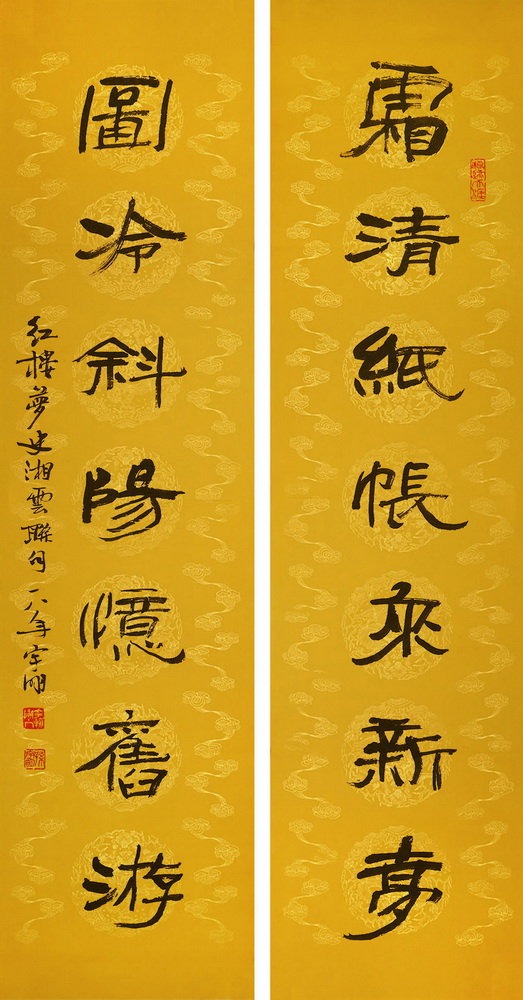 霜清紙帳來新夢
圖冷斜陽憶舊游
紅樓夢史湘雲聯句一八年宇明